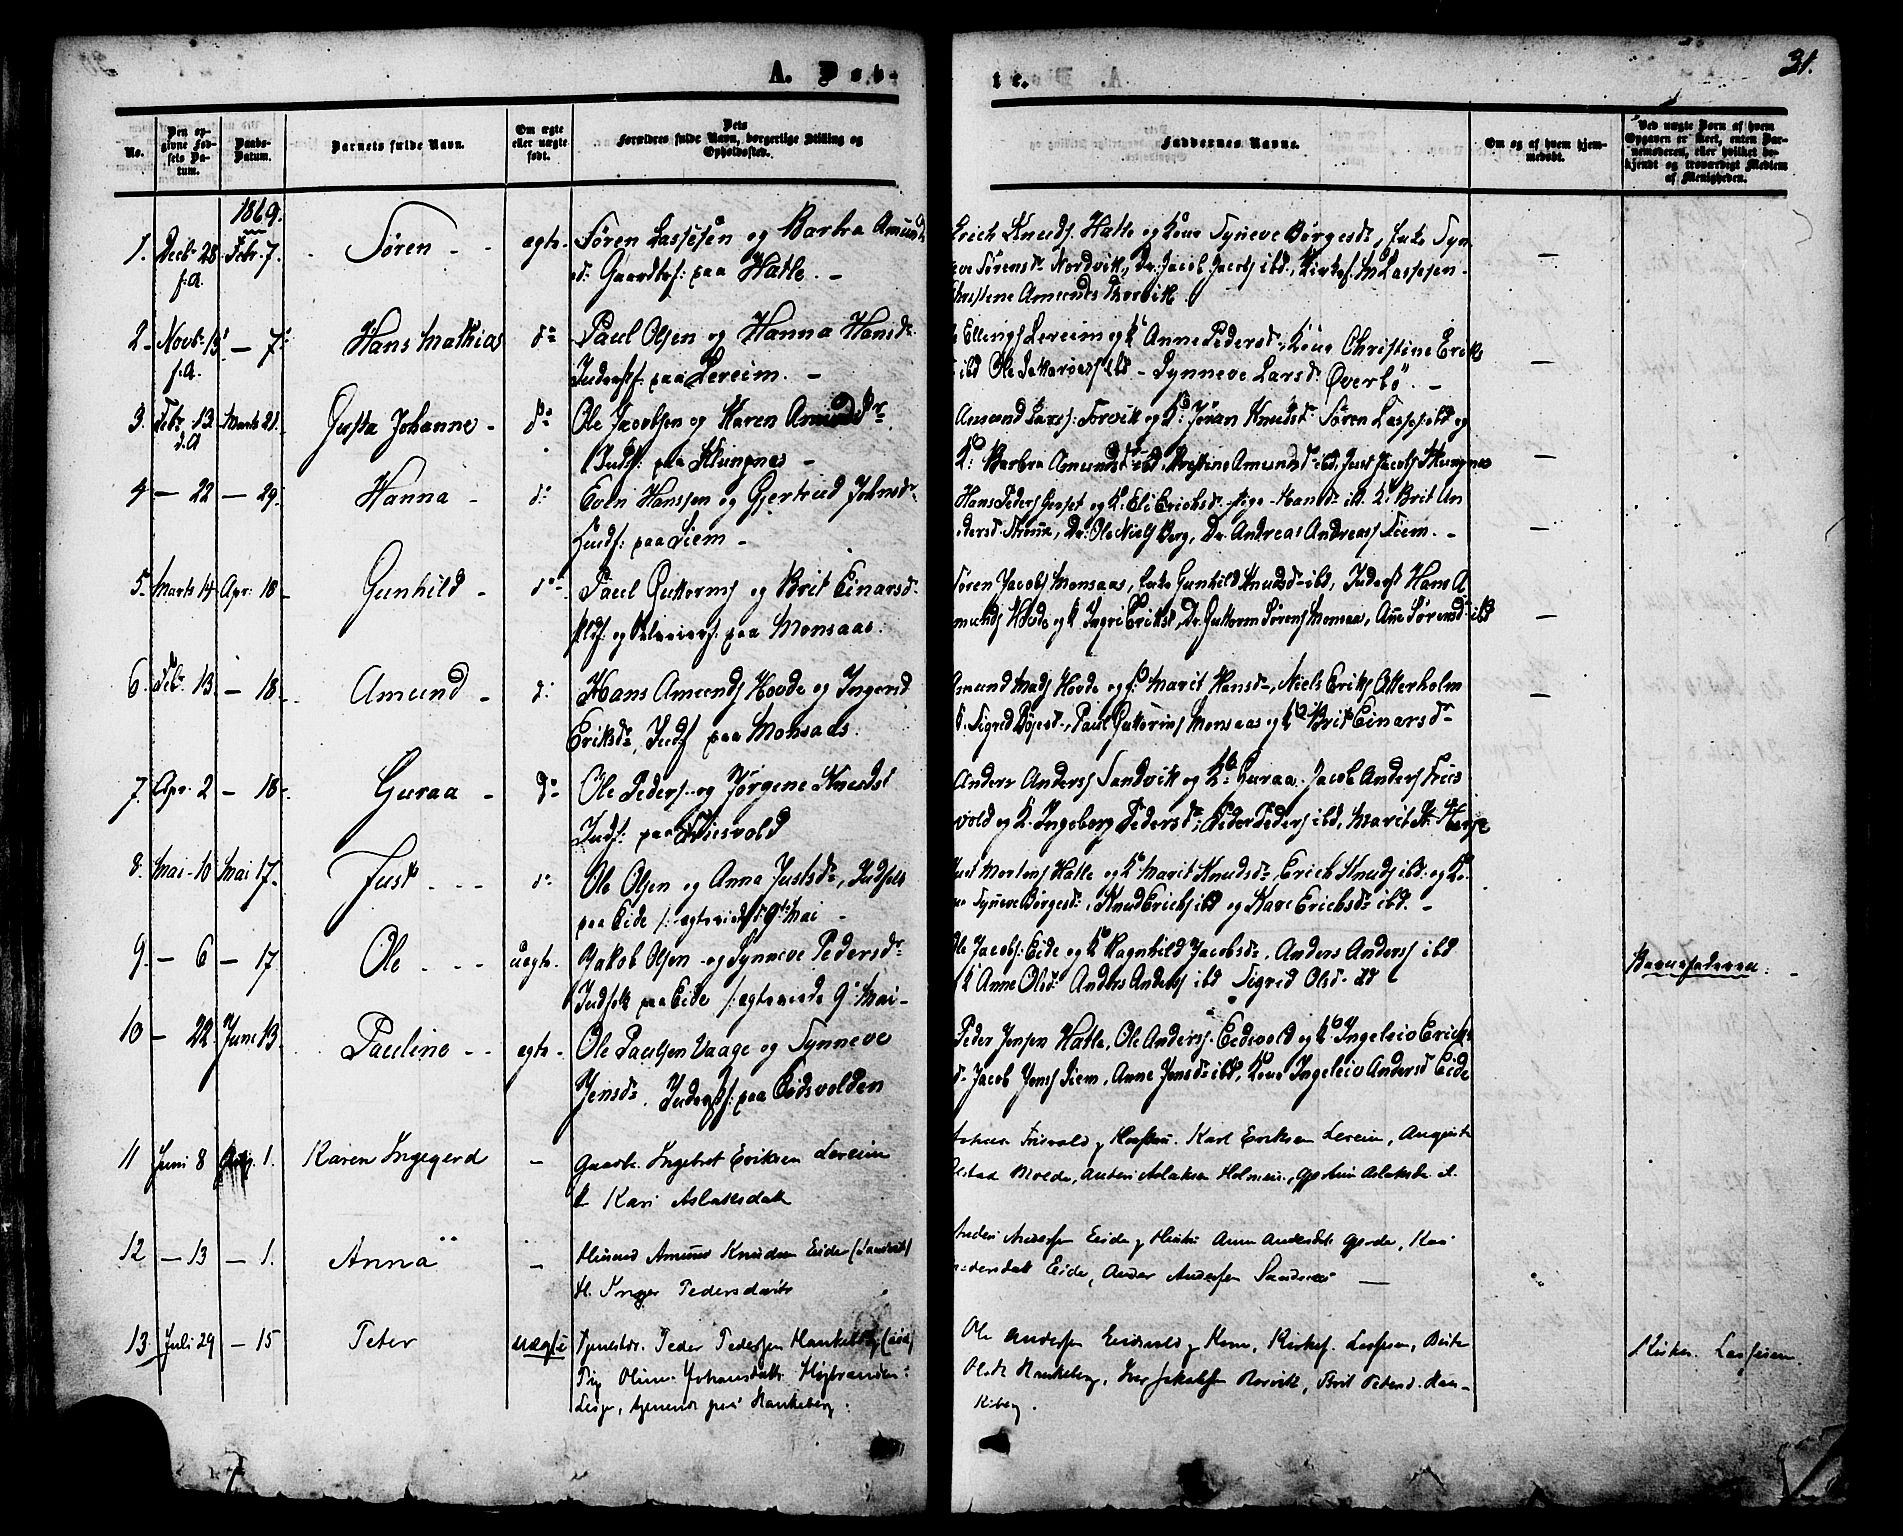 A. Døb-
te.
31.
No.
Den op-
givne Fød-
sels Da-
tum.
Daabs-
Datum.
Barnets fulde Navn.
Om ægte
eller uægte
født.
Dets
Forældres fulde Navn, borgerlige Stilling og
Opholdssted.
Faddernes Navne.
Om og af hvem hjem-
medøbt.
Ved uægte Børn af hvem
Opgaven er skeet, enten Bar-
nemoderen, eller hvilket be-
kjendt og troværdigt Medlem
af Menigheden.
1869.
1. Decbr 28 Febr. 7. Søren - - ægte. Søren Lassesen og Barbra Amunds
f.A. dr Gaardbrf: paa Hatle. -
Erich Knuds. Hatle og Kone Synneve Børgesdr, Enke Syn
eve Sørensdr Nordvik, Dr. Jacob Jacobs ibd, Kirkes. M Lassesen
Christine Amundsd Thorvik
2. Novbr 15 - 7. Hans Mathias do Paul Olsen og Hanna Hansdr
f.A. Inderstf: paa Lereim. -
Ellings Lereim og K Anne Pedersdr, Kone Christine Eriks
ibd Ole ibd - Synneve Larsd Øverbö. -
3. Febr. 13 Marts 21. Gusta Johanne - do Ole Jacobsen og Karen Amundsdr.
d.A Indsf: paa Klungnes -
Amund Lars: Torvik og K: Jöran Knudsdr Søren Lasses ibd og
Ko: Barbra Amundsdr ibd, Kristine Amundsdr ibd, Just Jacobs Klungnes
4 - 22 - 29. Hanna - do Even Hanssen og Gjertrud Johnsdr
Indsf: paa Siem -
Hans Peders og K. Eli Erichsdr Hansdr ibd. K. Brit An
dersd. , Dr. Ole Niels Berg, Dr. Andreas Andreass Siem. -
5. Marts 14 Apr. 18 - Gunhild - do Paul Guttorms og Brit Einarsdr
og paa Monsaas.
Søren Jacobs Monsaas, Enke Gunhild Knudsdr ibd, Inderst Hans A
munds Hovde og K Ingri Eriksd, Dr. Guttorm Sørens Monsaas, Ane Sørensd ibd
6. Feb. 13. - 18. Amund - do Hans Amunds Hovde og Ingerid
Eriksdr, Indsf paa Monsaas.
Amund Mads Hovde og K: Marit Hansdr, Niels Eriks Otterholm
Sigrid , Paul Guttorms Monsaas og Ko Brit Einarsdr
7. Apr. 2 - 18. Guraa - do Ole Peders. og Jørgine Knudsd
Indsf: paa Friisvold
Anders Anderss Sandvik og Ko Guraa. Jacob Anders Friis
vold og K. Ingeborg Pedersdr, Peder Peders ibd, Marit
8. Mai 10 Mai 17. Just - - - do Ole Olsen og Anna Justsdr, Indfolk
paa Eide /: ægteviede 9de Mai -
Just Mortens Hatle og K Marit Knudsdr, Erich Knuds ibd. og Ko
ne Synneve Børgesdr, Knud Erichs ibd og Kari Erichsdr ibd. -
9. - 6 - 17. Ole - - - uægte. Jakob Olsen og Synneve Pedersdr
Indfolk paa Eide /: ægteviede 9. Mai -
Ole Jacobs: Eide og K Ragnhild Jacobsdr. Anders Anders ibd
K Anne Olsd Anders Anders ibd Sigrid Olsd ibd
Barnefaderen.
10 - 22. Juni 13. Pauline - - ægte - Ole Paulsen Vaage og Synneve
Jensdr. Inderstf: paa Eidsvolden
Peder Jensen Hatle, Ole Anders. Eidsvold og Ko Ingeleiv Erichs
dr Jacob Jens Siem, Anne Jensdr ibd, Kone Ingeleiv Andersd Eide
11 Juni 8 1. Karen Ingegerd - Gaardb. Ingebret Eriksen Lereim
H. Kari Aslaksdatt
Friisvold og Hustru. Karl Eriksen Lereim, Auguste
Molde, Aslaksen , Aslaksdr
12 - 13 - 1. Anna - Husmd Amund Knudsen Eide (Sandvik)
H. Inger Pedersdatr
Anders Andersen Eide og Hustru Anne Andersdt Gjerde, Kari
Pedersdatt Eide, Andersen -
13 Juli 29 - 15 Peter uægte Tjenestdr. Peder Pedersen Hankeberg
Pig Oline Johansdatter Højbranden:
Lesje, tjenende paa Hankeberg.
Ole Andersen Eidsvold og Kone, Kirkes. Lassesen, Brite
Olsdt Hankeberg, Iver Jakobsen Rørvik, Brit Petersd. Han-
keberg.
Kirkes. Lassesen.